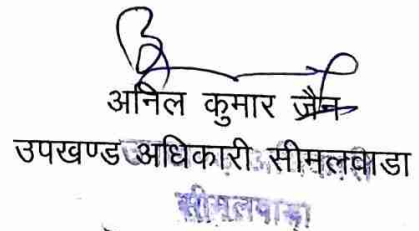 अनिल कुमार जैन
उपखण्ड अधिकारी सीमलवाडा
सीमलवाडा